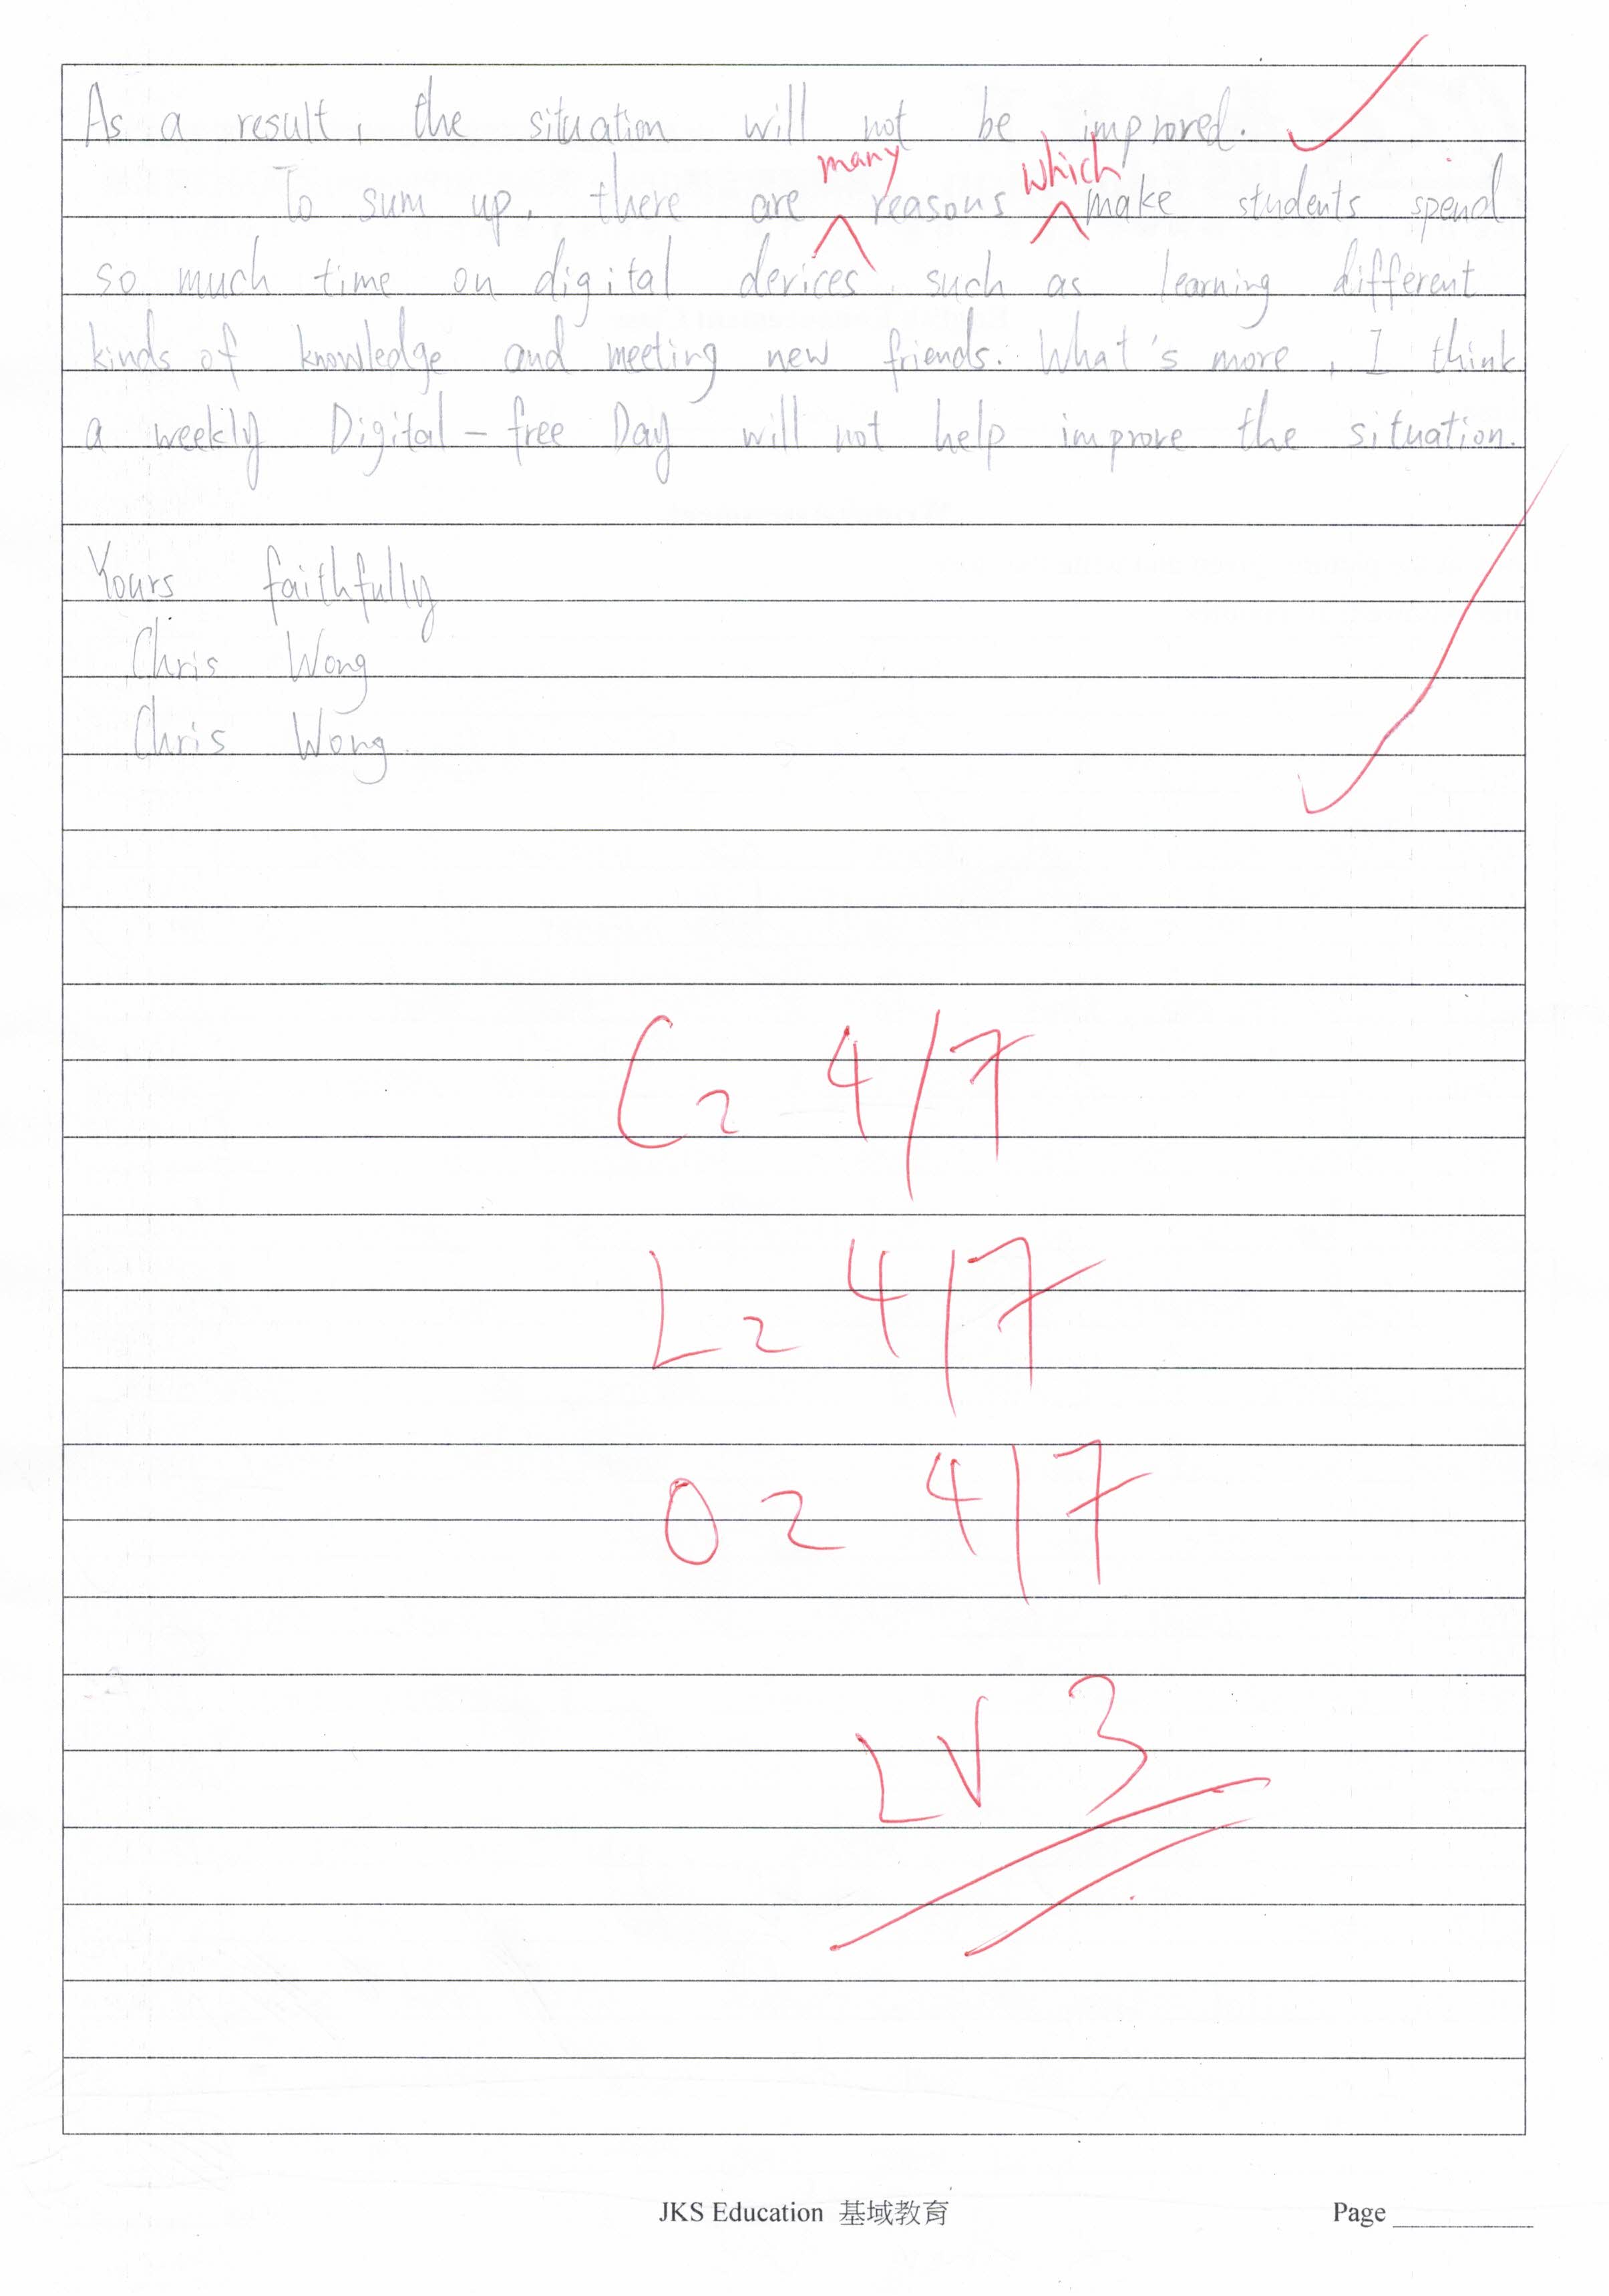 As a result, the situation will not be improved.
many which
To sum up, there are reasons make students spend
so much time on digital devices such as learning different
kinds of knowledge and meeting new friends. What's more, I think
a weekly Digital-free Day will not help improve the situation.
Yours faithfully
Chris Wong
Chris Wong.
C = 4/7
L = 4/7
O = 4/7
LV 3
JKS Education 基域教育
Page